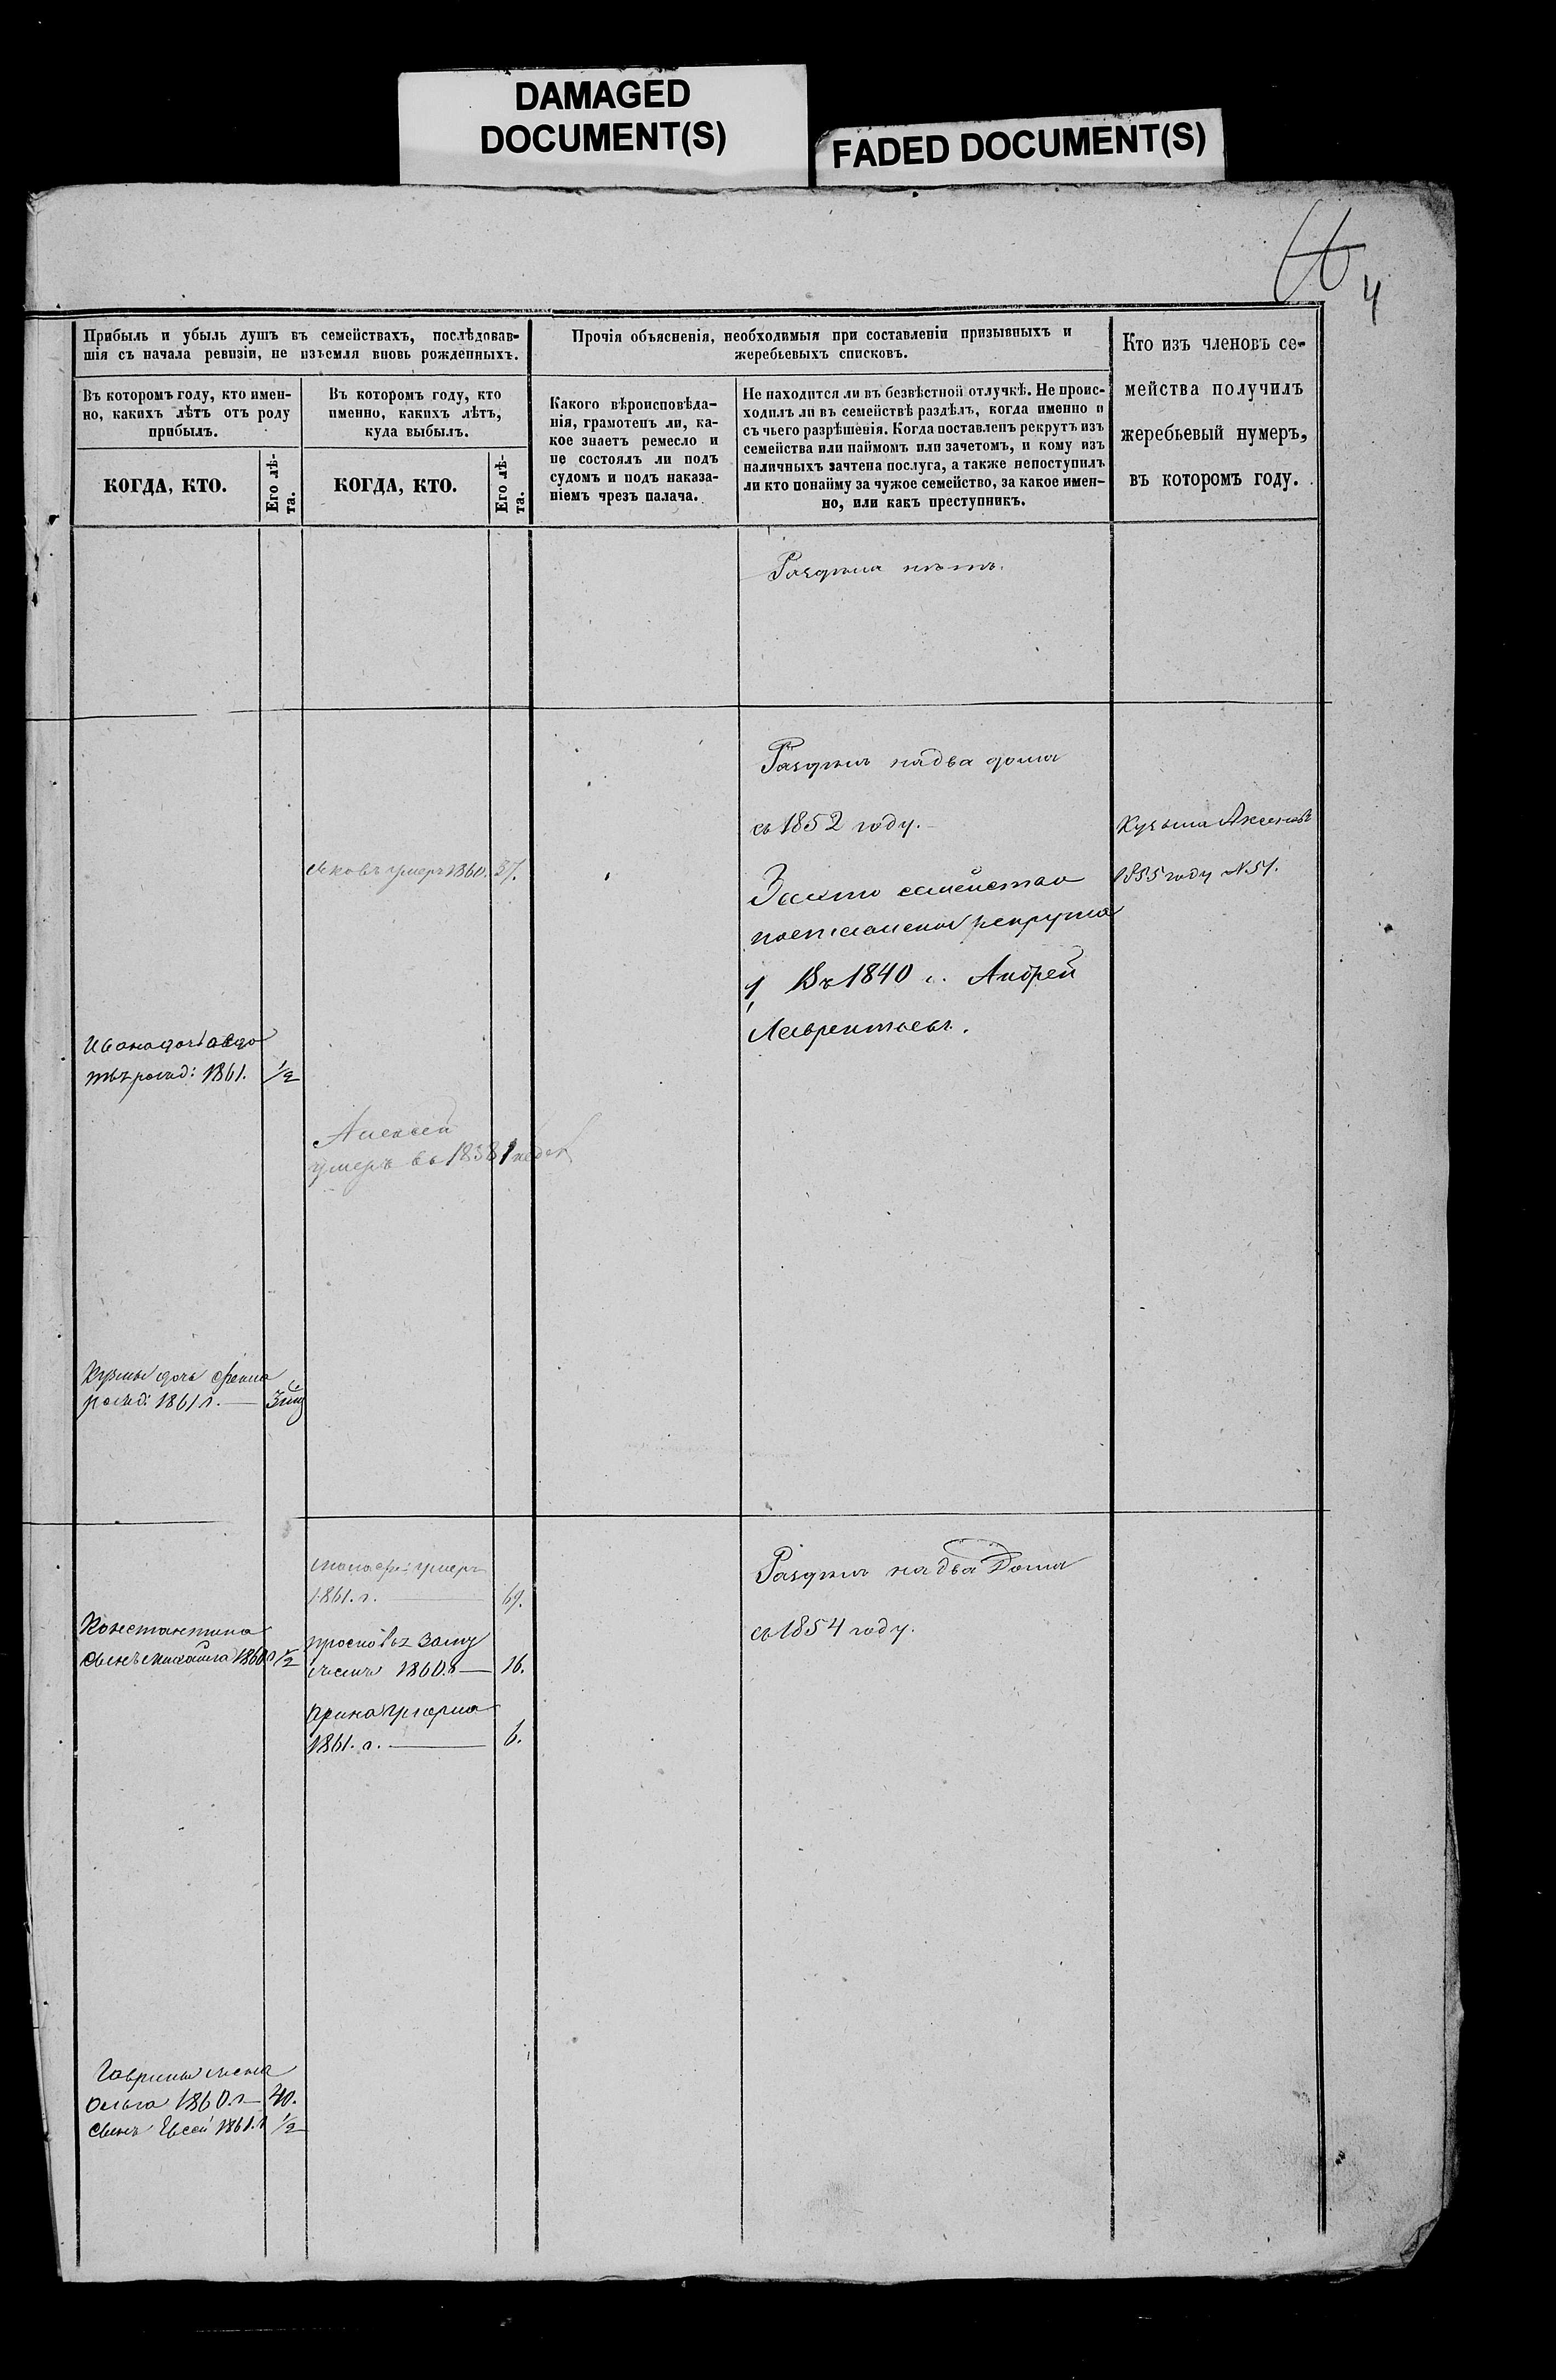 DAMAGED
DOCUMENT(S)
FADED DOCUMENT(S)
4
Прибыль и убыль душъ въ семействахъ, послѣдовав-
шія съ начала ревизіи, не изъемля вновь рожденныхъ.
Прочія объясненія, необходимыя при составленіи призывныхъ и
жеребьевыхъ списковъ.
Кто изъ членовъ се-
мейства получилъ
жеребьевый нумеръ,
въ которомъ году.
Въ которомъ году, кто имен-
но, какихъ лѣтъ отъ роду
прибылъ.
Въ которомъ году, кто
именно, какихъ лѣтъ,
куда выбылъ.
Какого вѣроисповѣда-
нія, грамотенъ ли, ка-
кое знаетъ ремесло и
не состоялъ ли подъ
судомъ и подъ наказа-
ніемъ чрезъ палача.
Не находится ли въ безвѣстной отлучкѣ. Не проис-
ходилъ ли въ семействѣ раздѣлъ, когда именно и
съ чьего разрѣшенія. Когда поставленъ рекрутъ изъ
семейства или наймомъ или зачетомъ, и кому изъ
наличныхъ зачтена послуга, а также непоступилъ
ли кто понайму за чужое семейство, за какое имен-
но, или какъ преступникъ.
КОГДА, КТО.
Его лѣ-
та.
КОГДА, КТО.
Его лѣ-
та.
Раздѣла нѣтъ.
Раздѣлъ на два дома
съ 1852 году.
Кузьма
1855 году №51.
умеръ 1860. 37.
семейство
рекрута
1, Въ 1840 г. Андрей
Лаврентьевъ.
Ивана дочь авдо
рожд: 1861. 1/2
Алексей
умеръ въ 1858 1
Кузмы дочь
рожд: 1861 г.
умеръ
1861. г. 69.
Раздѣлъ на два Дома
съ 1854 году.
Константина
сынъ Михайла 1860 г 1/2
заму
1860. г 16.
арина умерла
1861. г. 6.
Гаврилы жена
Ольга 1860. г 40.
сынъ Евсей 1861. г 1/2